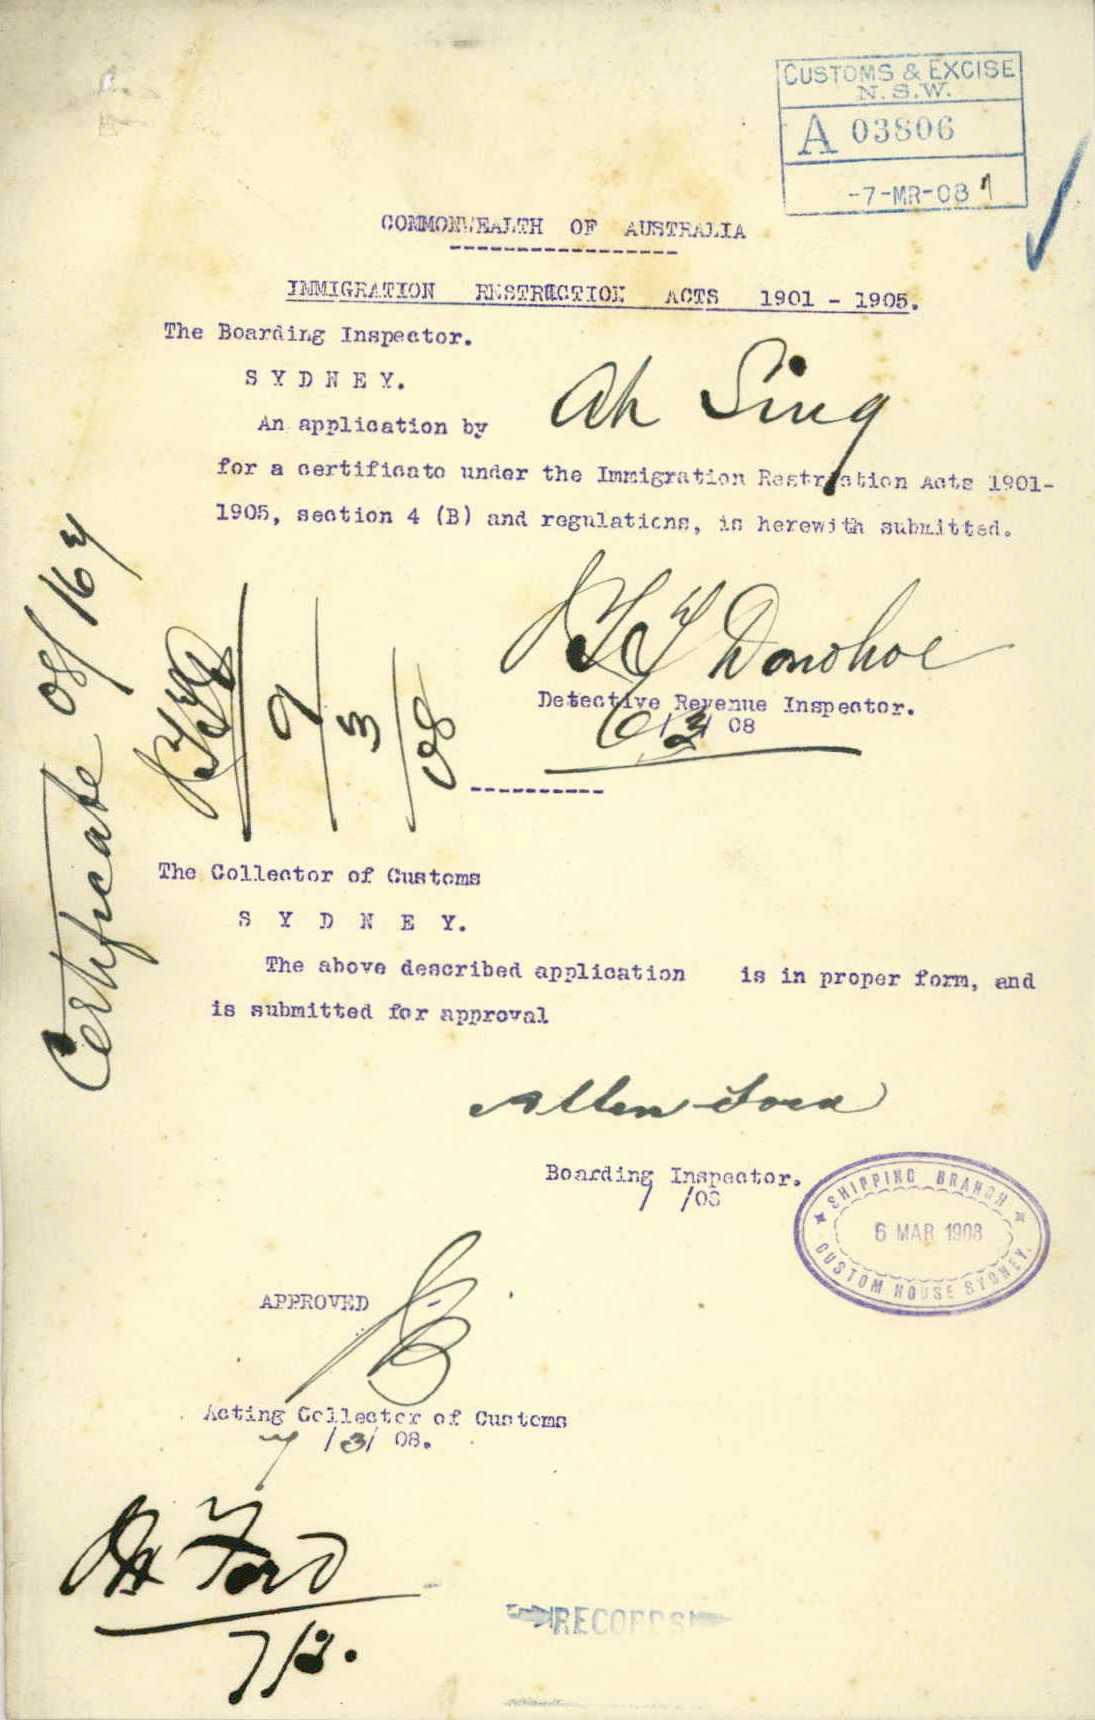 CUSTOMS & EXCISE
N.S.W.
A 03806
-7-MR-08
COMMONWEALTH OF AUSTRALIA
IMMIGRATION RESTRICTION ACTS 1901 - 1905.
The Boarding Inspector.
SYDNEY.
An application by Ah Sing
for a certificate under the Immigration Restriction Acts 1901-
1905, section 4 (B) and regulations, is herewith submitted.
Donohoe
Detective Revenue Inspector.
6/3/08
9/3/08
Certificate 08/167
The Collector of Customs
SYDNEY.
The above described application is in proper form, and
is submitted for approval
Allen
Boarding Inspector.
/ /08
SHIPPING BRANCH
6 MAR 1908
CUSTOM HOUSE SYDNEY.
APPROVED
Acting Collector of Customs
7/3/08.
Ford
7/3.
RECORDS